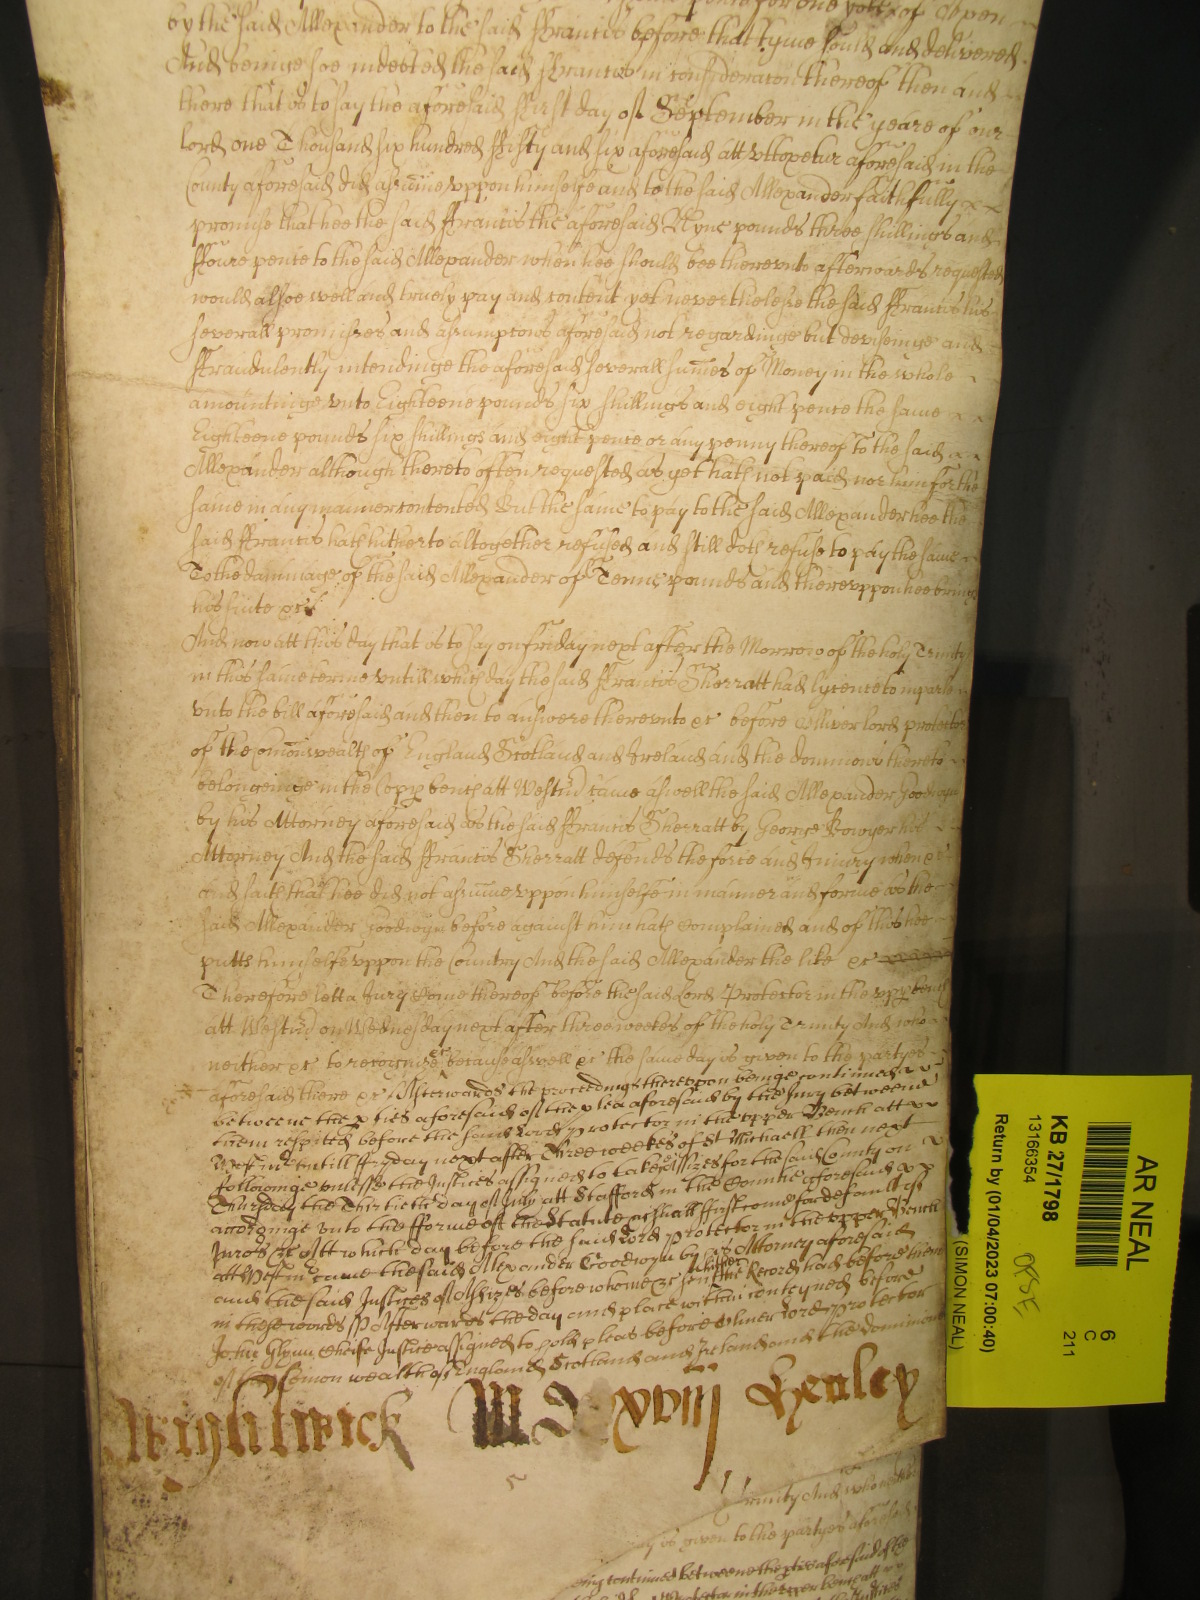 pence for one yoke of Open
by the said Allexander to the said Ffrancis before that tyme sould and delivered
And beinge soe indebted the said Ffrancis in consideracon thereof then and
there that is to say the aforesaid ffirst day of September in the yeare of our
lord one Thousand six hundred ffifty and six aforesaid att Vttoxetur aforesaid in the
County aforesaid did assume vppon himselfe and to the said Allexander faithfully
promise that hee the said Ffrancis the aforesaid Nyne pounds three shillings and
ffoure pence to the said Allexander when hee should bee therevnto afterwards requested
would alsoe well and truely pay and content yet neverthelesse the said Ffrancis his
severall promisses and assumptons aforesaid not regardinge but deviseinge and
ffraudulently intendinge the aforesaid severall sumes of Money in the whole
amountinge vnto Eighteene pounds six shillings and eight pence the same
Eighteene pounds six shillings and eight pence or any penny thereof to the said
Allexander although thereto often requested as yet hath not paid nor him for the
same in any manner contented But the same to pay to the said Allexander hee the
said Ffrancis hath hitherto altogether refused and still doth refuse to pay the same
To the dammage of the said Allexander of Tenne pounds and therevppon hee brings
his suite &c
And now att this day that is to say on friday next after the Morrow of the holy Trinity
in this same terme vntill which day the said Ffrancis Sherratt had lycence to imparle
vnto the bill aforesaid and then to answere therevnto &c before Olliver lord protector
of the comonwealth of England Scotland and Ireland and the dominions thereto
belonginge in the Vpp bench att Westmd came aswell the said Allexander Goodwyn
by his Attorney aforesaid as the said Ffrancis Sherratt by George Bowyer his
Attorney And the said Ffrancis Sherratt defends the force and Iniury when &c
and saith that hee did not assume vppon himselfe in manner and forme as the
said Allexander Goodwyn before against him hath Complained and of this hee
putts himselfe vppon the Country And the said Allexander the like &c
Therefore lett a Iury Come thereof before the said Lord Protector in the vpp bench
att Westmd on Wednesday next after three weekes of the holy Trinity And who
neither &c to recognize &c because aswell &c the same day is given to the partyes
aforesaid there &c Afterwards the proceedings therevpon beinge continued
betweene the pties aforesaid of the plea aforesaid by the Iury betweene
them respited before the said Lord Protector in the vpper Bench att
Westmd vntill ffryday next after Three weekes of St Michaell then next
followinge vnlesse the Iustices assigned to take Assizes for the said County on
Thursday the Thirtieth day of Iuly att Stafford in the Countie aforesaid
accordinge vnto the fforme of the Statute &c shall ffirst come for default of
Iurors &c Att which day before the said Lord Protector in the vpper Bench
att Westmd came the said Allexander Goodwyn by his Attorney aforesaid
and the said Iustices of Assizes before whome &c sent hither the Record had before them
in these words ss Afterwards the day and place within conteyned before
Iohn Glynn Cheife Iustice assigned to hold pleas before Oliver Lord Protector
of the Comon wealth of England Scotland and Ireland and the dominions
Wightwick M D xviij Henley
Trinity And who neither
day is given to the partyes aforesaid
being continued betweene the pties aforesaid of the
Protector in the vpper bench att
AR NEAL
6
C
211
KB 27/1798
13166354
Return by (01/04/2023 07:00:40)
(SIMON NEAL)